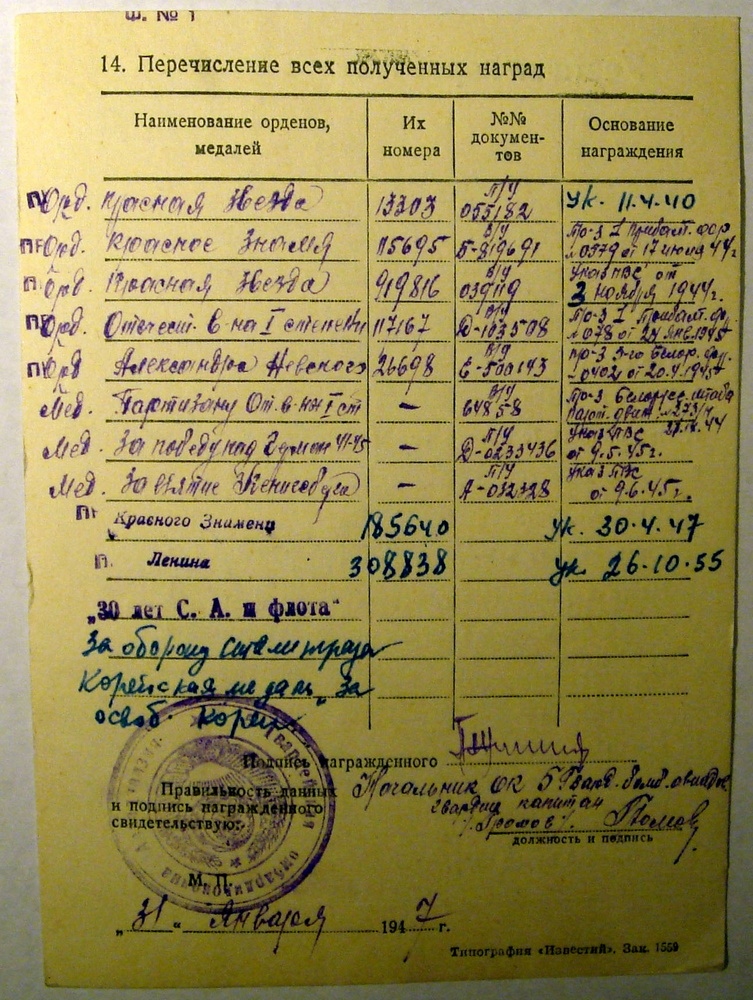 Ф. № 1
14. Перечисление всех полученных наград
Наименование орденов, медалей
Их номера
№№ документов
Основание награждения
Орд. Красная Звезда 13303 п/у 055182 Ук. 11.4.40
Орд. Красное Знамя 115695 в/у Б-819691 Пр-з I Прибалт. фор № 0579 от 17 июня 44 г.
Орд. Красная Звезда 919816 в/у 039119 Указ ПВС от 3 ноября 1944 г.
Орд. Отечест. в-на I степени 117167 в/у Д-103508 Пр-з I Прибалт. фр. № 078 от 24 янв. 1945
Орд Александра Невского 26698 в/у Е-500143 Пр-з 3-го Белор. фр. 0402 от 20.4.1945
Мед. Партизану От. в-ны I ст – в/у 64858 Пр-з Белорусс. штаба парт. движ.
Мед. За победу над Герман 41-45 – п/у Д-0233436 Указ ПВС от 9.5.45 г.
Мед. За взятие Кенигсберга – п/у А-032328 Указ ПВС от 9.6.45 г.
Красного Знамени 185640 Ук. 30.4.47
Ленина 308838 Ук. 26.10.55
„30 лет С. А. и флота“
За оборону Сталинграда
Корейская медаль „За
освоб. Кореи“
Подпись награжденного
Правильность данных
и подпись награжденного
свидетельствую:
Начальник ОК 5 Гвард. бомб. авиадив
гвардии капитан
/Громов/
должность и подпись
М. П.
„31“ Января 1947 г.
Типография «Известий». Зак. 1559